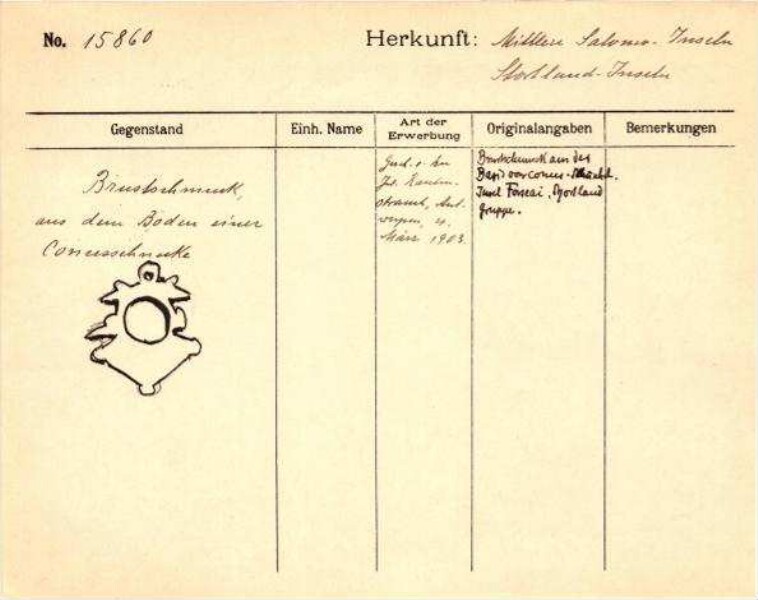 No. 15860
Herkunft: Mittlere Salomo-Inseln
Shortland-Inseln
Gegenstand
Einh. Name
Art der
Erwerbung
Originalangaben
Bemerkungen
Brustschmuck,
aus dem Boden einer
Conusschnecke
Gesch. v.
werpen, 4.
März 1903.
Brustschmuck aus der
Basis von Conus-
Insel Fossai, Mortland
Gruppe.